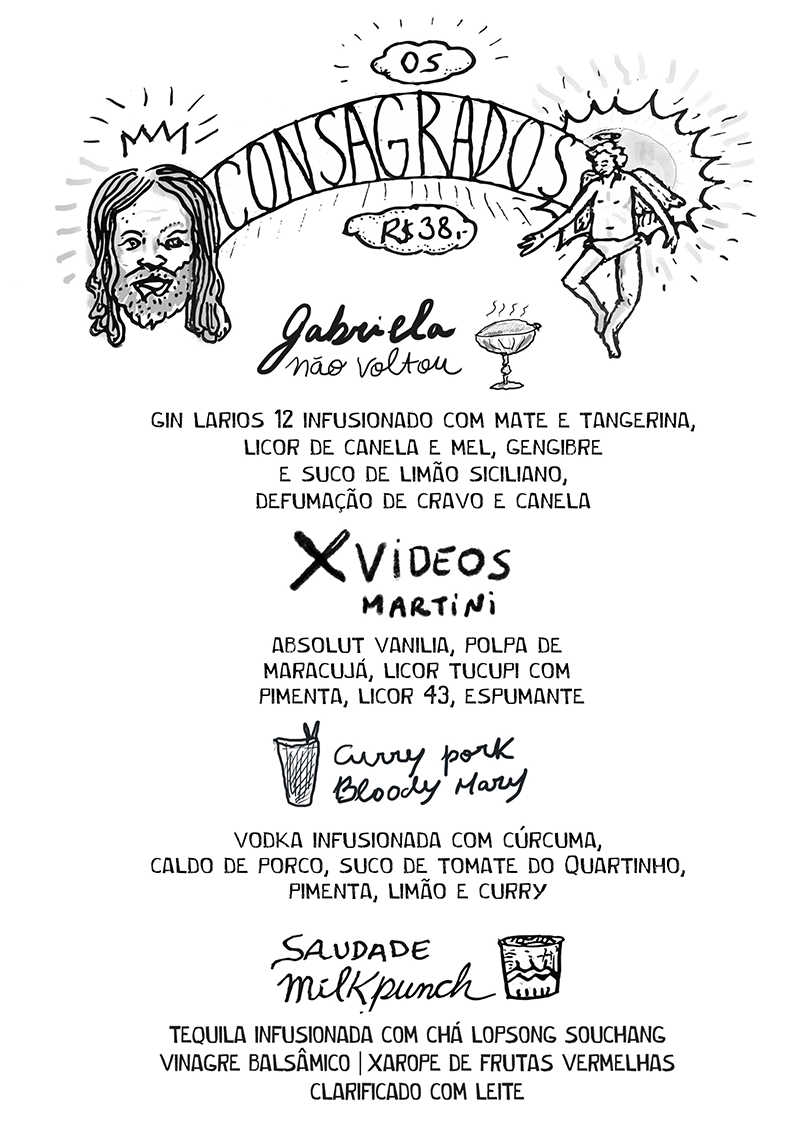 OS
CONSAGRADOS
R$38,-
Gabriela
não voltou
GIN LARIOS 12 INFUSIONADO COM MATE E TANGERINA,
LICOR DE CANELA E MEL, GENGIBRE
E SUCO DE LIMÃO SICILIANO,
DEFUMAÇÃO DE CRAVO E CANELA
XVIDEOS
MARTINI
ABSOLUT VANILIA, POLPA DE
MARACUJÁ, LICOR TUCUPI COM
PIMENTA, LICOR 43, ESPUMANTE
Curry pork
Bloody Mary
VODKA INFUSIONADA COM CÚRCUMA,
CALDO DE PORCO, SUCO DE TOMATE DO QUARTINHO,
PIMENTA, LIMÃO E CURRY
SAUDADE
Milkpunch
TEQUILA INFUSIONADA COM CHÁ LOPSONG SOUCHANG
VINAGRE BALSÂMICO | XAROPE DE FRUTAS VERMELHAS
CLARIFICADO COM LEITE